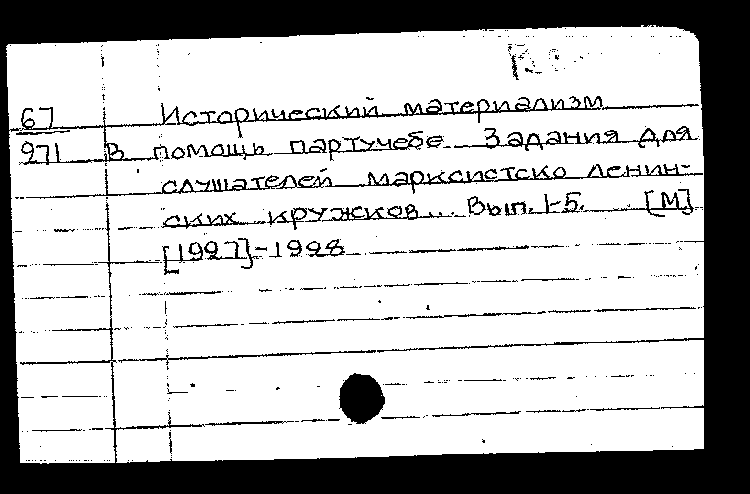 67 Исторический материализм
971 В помощь партучебе Задания для
слушателей марксистско ленин-
ских кружков... Вып. 1-5. [М]
[1927]-1928